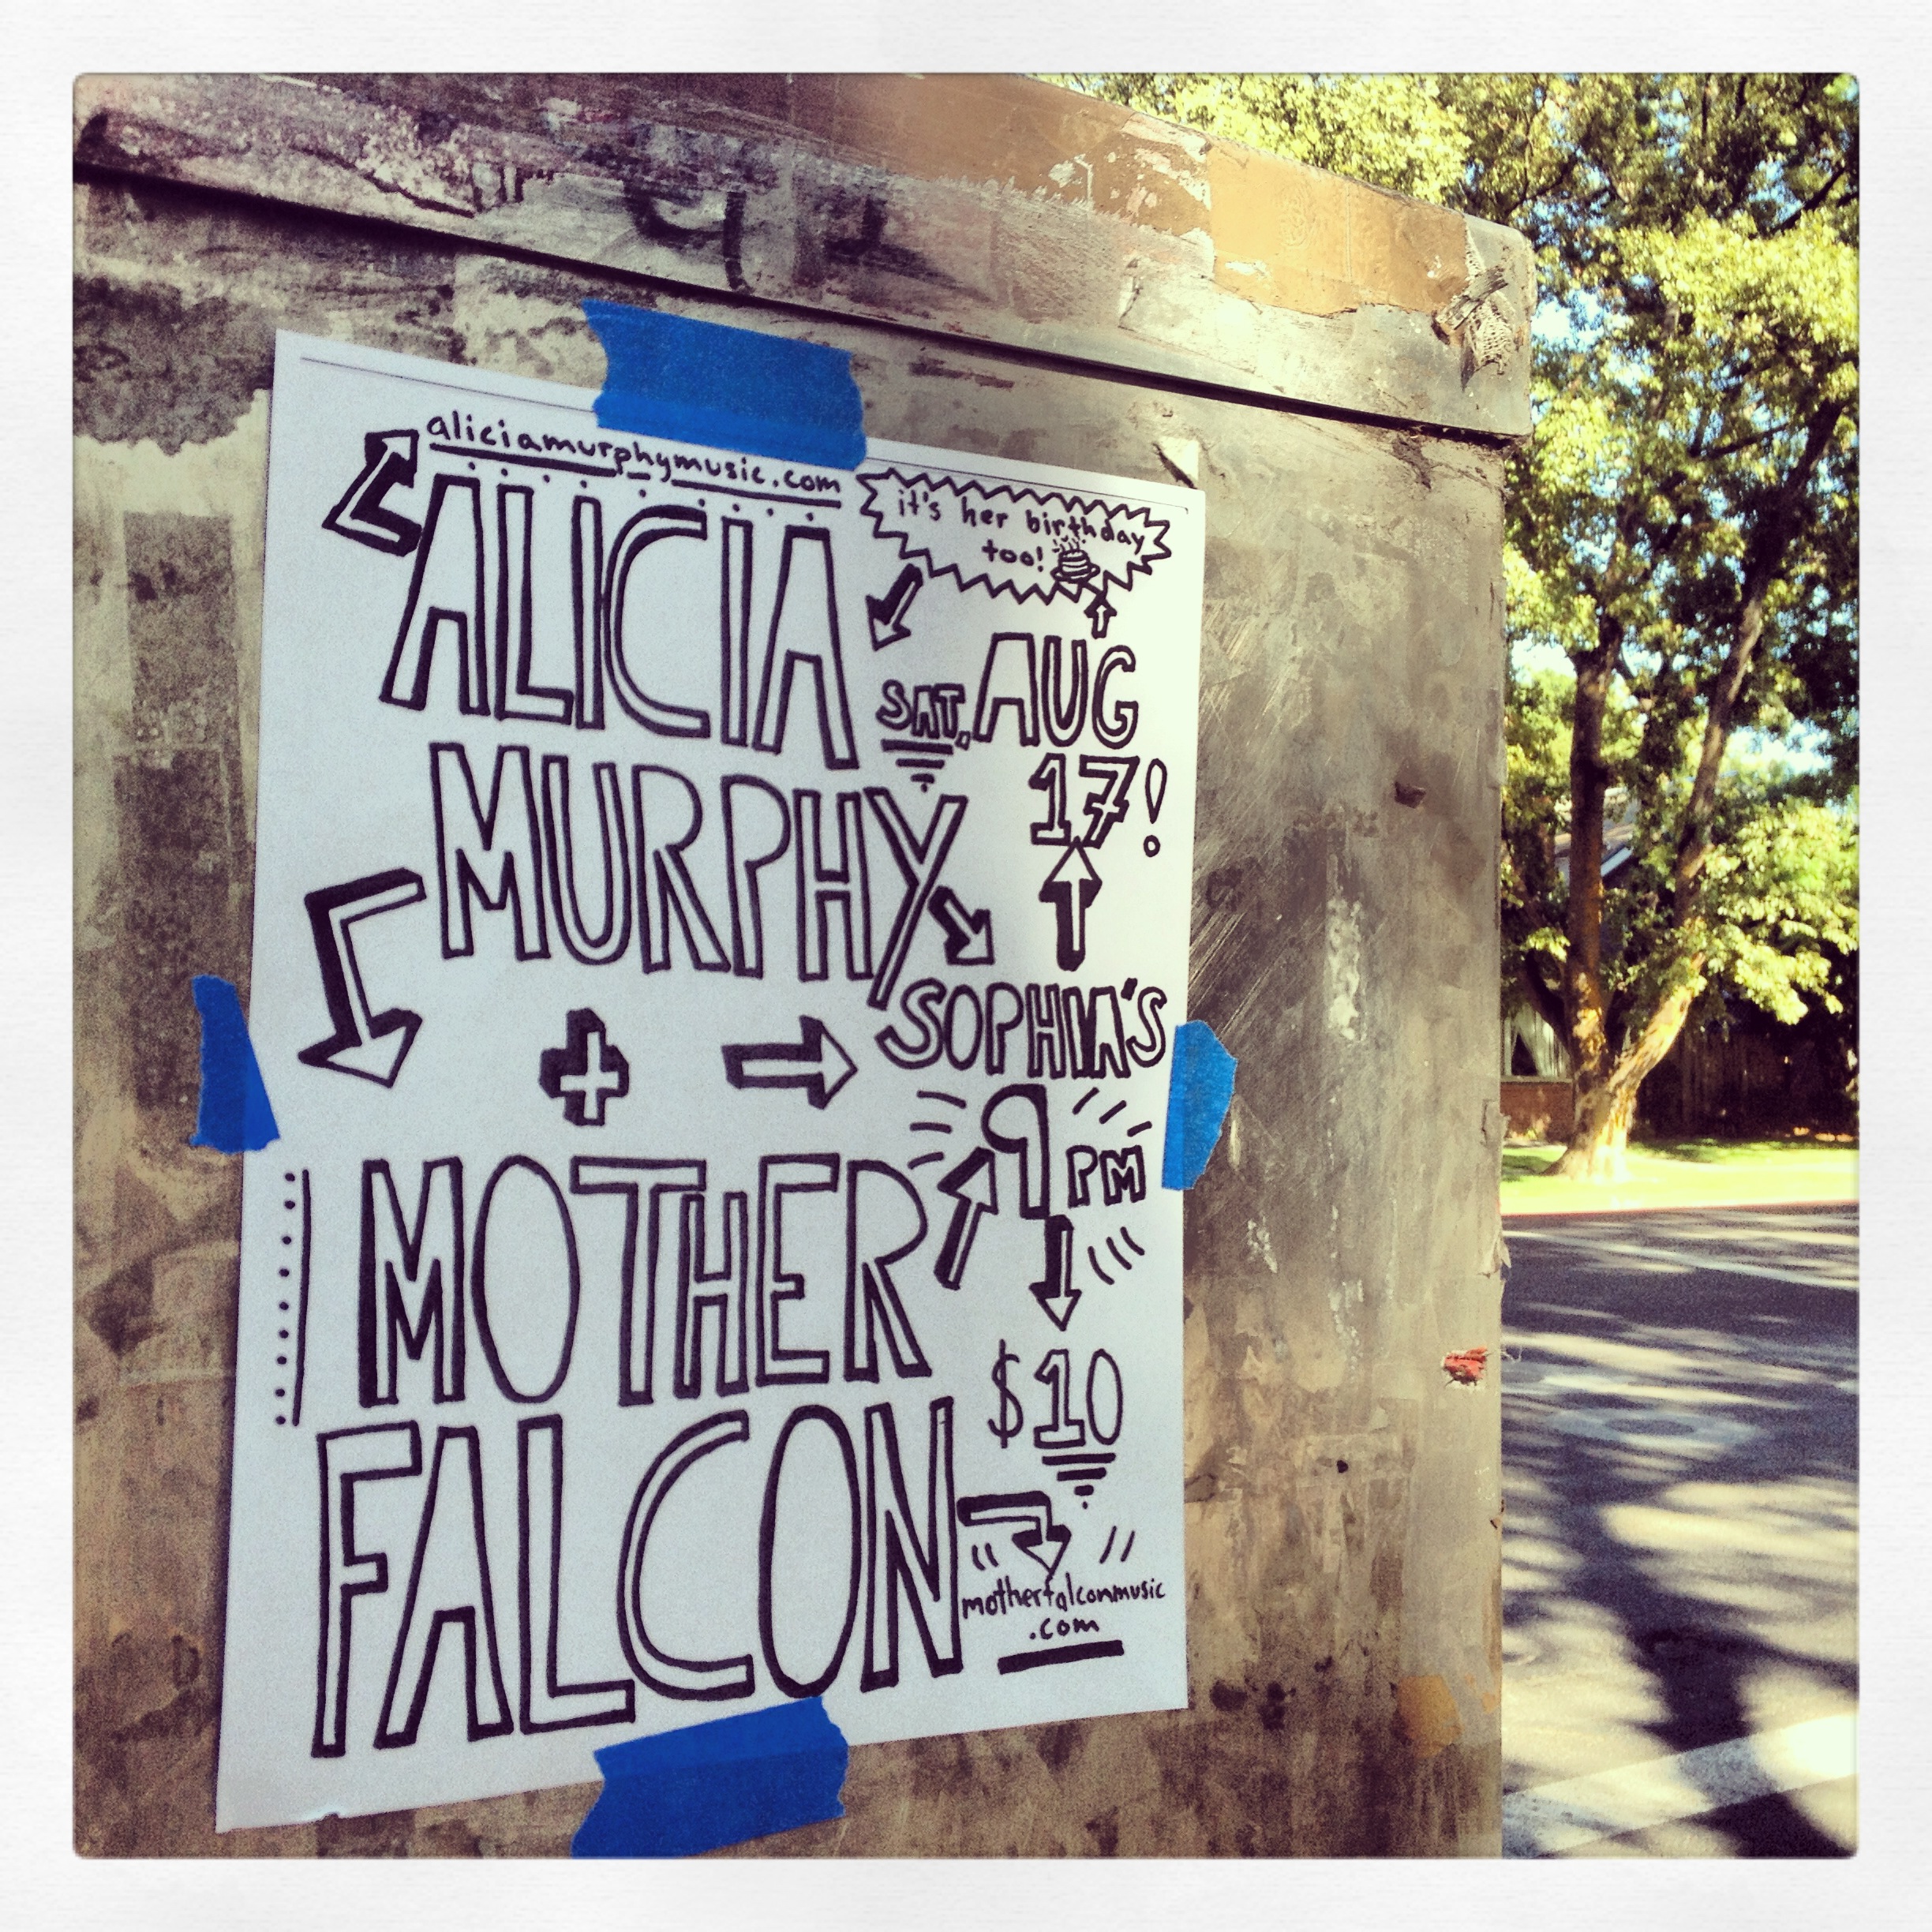 aliciamurphymusic.com
it's her birthday
too!
ALICIA
SAT, AUG
17!
MURPHY
+
SOPHIA'S
9 PM
MOTHER
$10
FALCON
motherfalconmusic
.com